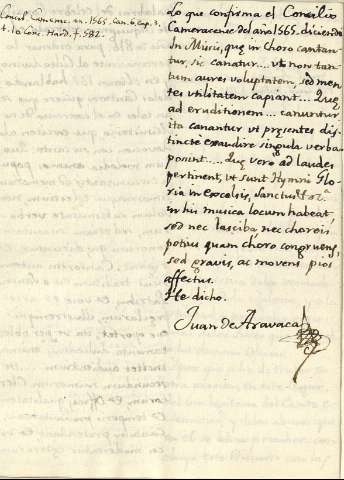 Concil. Camerac. an. 1565. Can. 6. Cap. 3.
t. 10. Conc. Hard. f. 582.
Lo que confirma el Concilio
Cameracense del año 1565. diciendo
In Missis, quæ in choro cantan-
tur, sic canatur... ut non tan-
tum aures voluptatem, sed men-
tes utilitatem capiant... Quæ
ad eruditionem... canuntur
ita canantur ut præsentes dis-
tincte exaudire singula verba
possint.... Quæ vero ad laudes
pertinent, ut sunt Hymni Glo-
ria in excelsis, Sanctus &c.
in his musica locum habeat,
sed nec lasciba, nec choreis
potius quam choro congruens,
sed gravis, ac movens pios
affectus.
He dicho.
Juan de Aravaca